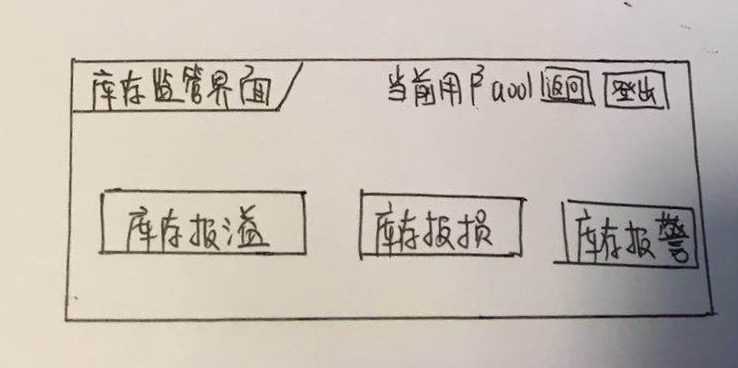 库存监管界面 当前用户a001 返回 登出
库存报溢 库存报损 库存报警